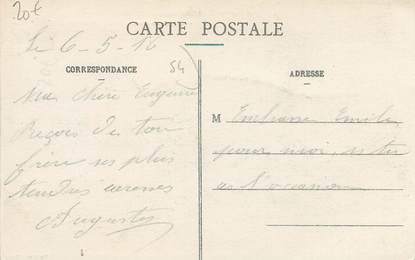 20€
CARTE POSTALE
Le 6-5-16
54
CORRESPONDANCE
ADRESSE
Ma chère Eugénie
Reçois de ton
frère ses plus
tendres caresses
Auguste
M Embrasse Emile
pour moi, si tu
as l'occasion